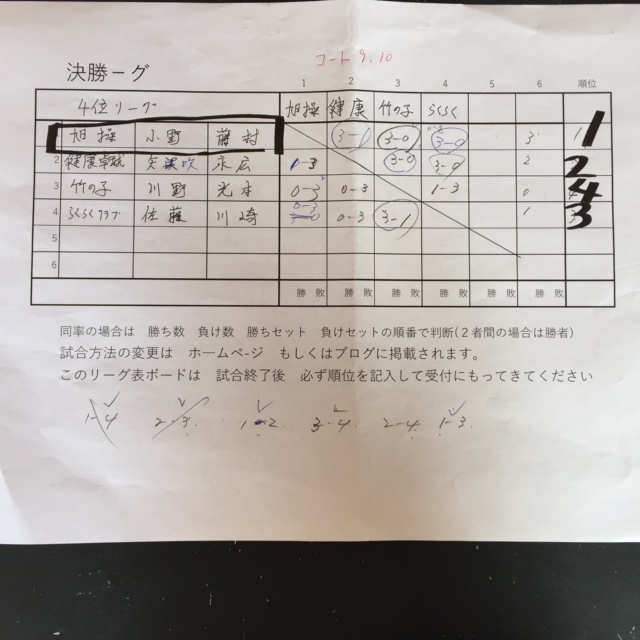 コート9.10
決勝ーグ
1 2 3 4 5 6 順位
4位リーグ 旭操 健康 竹の子 らくらく
旭操 小野 藤村 3-1 3-0 3-0 3 1 1
2 健康卓球 矢吹 末広 1-3 3-0 3-0 2 2
3 竹の子 川野 光本 0-3 0-3 1-3 0 4
4 らくらくクラブ 佐藤 川崎 0-3 0-3 3-1 1 3
5
6
勝 敗 勝 敗 勝 敗 勝 敗 勝 敗 勝 敗
同率の場合は 勝ち数 負け数 勝ちセット 負けセットの順番で判断(2者間の場合は勝者)
試合方法の変更は ホームページ もしくはブログに掲載されます。
このリーグ表ボードは 試合終了後 必ず順位を記入して受付にもってきてください
1-4 2-3. 1-2 3-4 2-4 1-3.